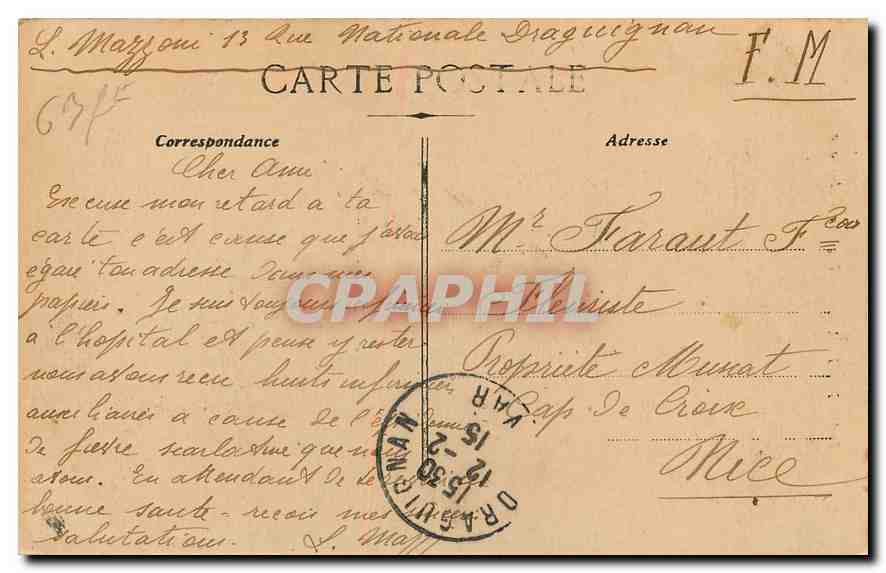 L. Mazzoni 13 Rue Nationale Draguignan
F. M
CARTE POSTALE
63
Correspondance
Adresse
Cher Ami
Excuse mon retard a ta
carte c'est cause que j'avais
égaré ton adresse dans mes
papiers. Je suis toujours
à l'hopital et pense y rester
nous avons recu huits infirmiers
auxiliaires a cause de l'épidemie
de fievre scarlatine que nous
avons. En attendant de te
bonne santé - recois mes
salutations. L. Mazz
Mr. Faraut Fcois
Fleuriste
Propriété Munat
Cap De Croix
Nice
DRAGUIGNAN
VAR
15 30
12 - 2
15
CPAPHIL